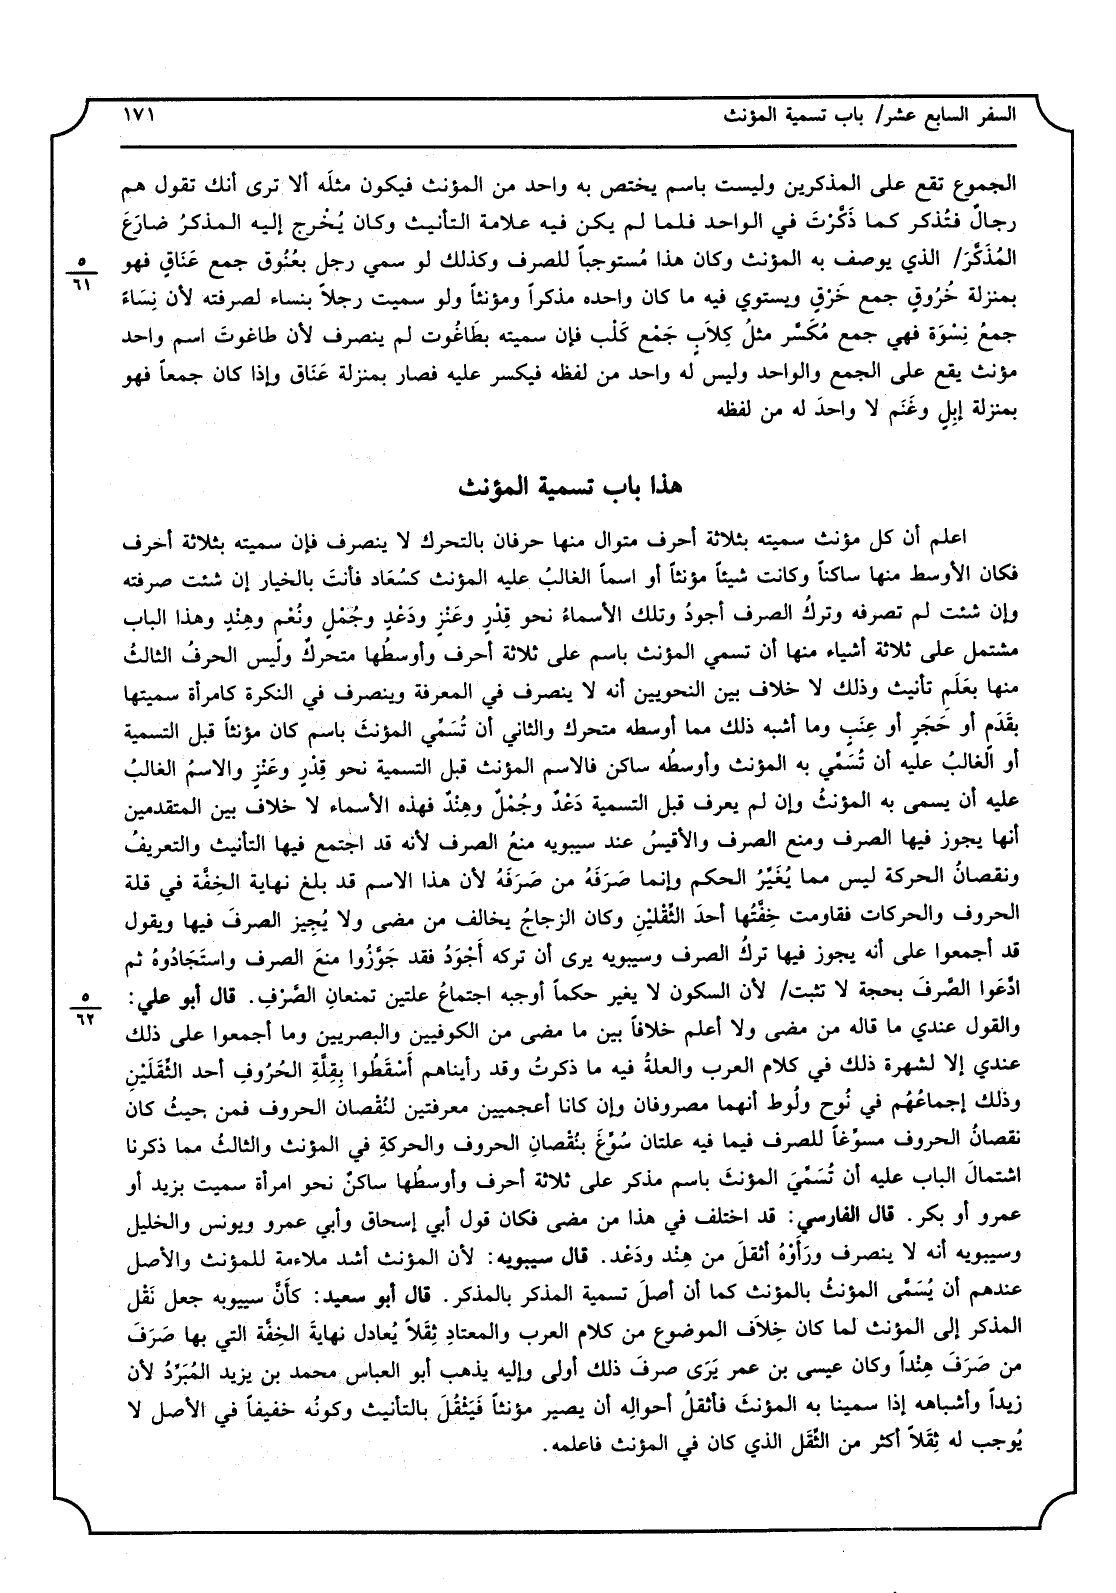 السفر السابع عشر/ باب تسمية المؤنث ١٧١
الجموع تقع على المذكرين وليست باسم يختص به واحد من المؤنث فيكون مثلَه ألا ترى أنك تقول هم
رجالٌ فتُذكر كما ذَكَّرْتَ في الواحد فلما لم يكن فيه علامة التأنيث وكان يُخْرج إليه المذكرُ ضارَعَ
المُذَكَّرَ/ الذي يوصف به المؤنث وكان هذا مُستوجباً للصرف وكذلك لو سمي رجل بعُنُوق جمع عَنَاقٍ فهو
٥
٦١
بمنزلة خُرُوقٍ جمع خَرْقٍ ويستوي فيه ما كان واحده مذكراً ومؤنثاً ولو سميت رجلاً بنساء لصرفته لأن نِسَاءً
جمعُ نِسْوَة فهي جمع مُكَسَّر مثلُ كِلَابٍ جَمْع كَلْب فإن سميته بطَاغُوت لم ينصرف لأن طاغوتَ اسم واحد
مؤنث يقع على الجمع والواحد وليس له واحد من لفظه فيكسر عليه فصار بمنزلة عَنَاق وإذا كان جمعاً فهو
بمنزلة إبِلٍ وغَنَم لا واحدَ له من لفظه
هذا باب تسمية المؤنث
اعلم أن كل مؤنث سميته بثلاثة أحرف متوال منها حرفان بالتحرك لا ينصرف فإن سميته بثلاثة أحرف
فكان الأوسط منها ساكناً وكانت شيئاً مؤنثاً أو اسماً الغالبُ عليه المؤنث كسُعَاد فأنتَ بالخيار إن شئت صرفته
وإن شئت لم تصرفه وتركُ الصرف أجودُ وتلك الأسماءُ نحو قِدْرٍ وعَنْزٍ ودَعْدٍ وجُمْلٍ ونُعْم وهِنْدٍ وهذا الباب
مشتمل على ثلاثة أشياء منها أن تسمي المؤنث باسم على ثلاثة أحرف وأوسطُها متحركٌ ولَيس الحرفُ الثالثُ
منها بعَلَمِ تأنيث وذلك لا خلاف بين النحويين أنه لا ينصرف في المعرفة وينصرف في النكرة كامرأة سميتها
بقَدَمٍ أو حَجَرٍ أو عِنَبٍ وما أشبه ذلك مما أوسطه متحرك والثاني أن تُسَمِّي المؤنثَ باسم كان مؤنثاً قبل التسمية
أو الغالبُ عليه أن تُسَمِّي به المؤنث وأوسطُه ساكن فالاسم المؤنث قبل التسمية نحو قِدْرٍ وعَنْزٍ والاسمُ الغالبُ
عليه أن يسمى به المؤنثُ وإن لم يعرف قبل التسمية دَعْدٌ وجُمْلٌ وهِنْدٌ فهذه الأسماء لا خلاف بين المتقدمين
أنها يجوز فيها الصرف ومنع الصرف والأقيسُ عند سيبويه منعُ الصرف لأنه قد اجتمع فيها التأنيث والتعريفُ
ونقصانُ الحركة ليس مما يُغَيِّرُ الحكم وإنما صَرَفَهُ من صَرَفَهُ لأن هذا الاسم قد بلغ نهاية الخِفَّة في قلة
الحروف والحركات فقاومت خِفَّتُها أحدَ الثِّقْلَيْنِ وكان الزجاجُ يخالف من مضى ولا يُجِيز الصرفَ فيها ويقول
قد أجمعوا على أنه يجوز فيها تركُ الصرف وسيبويه يرى أن تركه أَجْوَدُ فقد جَوَّزُوا منعَ الصرف واستَجَادُوهُ ثم
ادَّعَوا الصَّرفَ بحجة لا تثبت/ لأن السكون لا يغير حكماً أوجبه اجتماعُ علتين تمنعان الصَّرْفِ. قال أبو علي:
٥
٦٢
والقول عندي ما قاله من مضى ولا أعلم خلافاً بين ما مضى من الكوفيين والبصريين وما أجمعوا على ذلك
عندي إلا لشهرة ذلك في كلام العرب والعلةُ فيه ما ذكرتُ وقد رأيناهم أَسْقَطُوا بِقِلَّةِ الحُرُوفِ أحد الثِّقَلَيْنِ
وذلك إجماعُهُم في نُوح ولُوط أنهما مصروفان وإن كانا أعجميين معرفتين لنُقْصان الحروف فمن حيثُ كان
نقصانُ الحروف مسوِّغاً للصرف فيما فيه علتان سُوِّغَ بنُقْصانِ الحروف والحركةِ في المؤنث والثالثُ مما ذكرنا
اشتمالَ الباب عليه أن تُسَمِّيَ المؤنثَ باسم مذكر على ثلاثة أحرف وأوسطُها ساكنٌ نحو امرأة سميت بزيد أو
عمرو أو بكر. قال الفارسي: قد اختلف في هذا من مضى فكان قول أبي إسحاق وأبي عمرو ويونس والخليل
وسيبويه أنه لا ينصرف ورَأَوْهُ أثقلَ من هِنْد ودَعْد. قال سيبويه: لأن المؤنث أشد ملاءمة للمؤنث والأصل
عندهم أن يُسَمَّى المؤنثُ بالمؤنث كما أن أصلَ تسمية المذكر بالمذكر. قال أبو سعيد: كأَنَّ سيبويه جعل نَقْل
المذكر إلى المؤنث لما كان خِلاَف الموضوع من كلام العرب والمعتادِ ثِقَلاً يُعادل نهايةَ الخِفَّة التي بها صَرَفَ
من صَرَفَ هِنْداً وكان عيسى بن عمر يَرَى صرفَ ذلك أولى وإليه يذهب أبو العباس محمد بن يزيد المُبَرِّدُ لأن
زيداً وأشباهه إذا سمينا به المؤنثَ فأثقلُ أحوالِه أن يصير مؤنثاً فَيَثْقُلَ بالتأنيث وكونُه خفيفاً في الأصل لا
يُوجب له ثِقَلاً أكثر من الثِّقَل الذي كان في المؤنث فاعلمه.